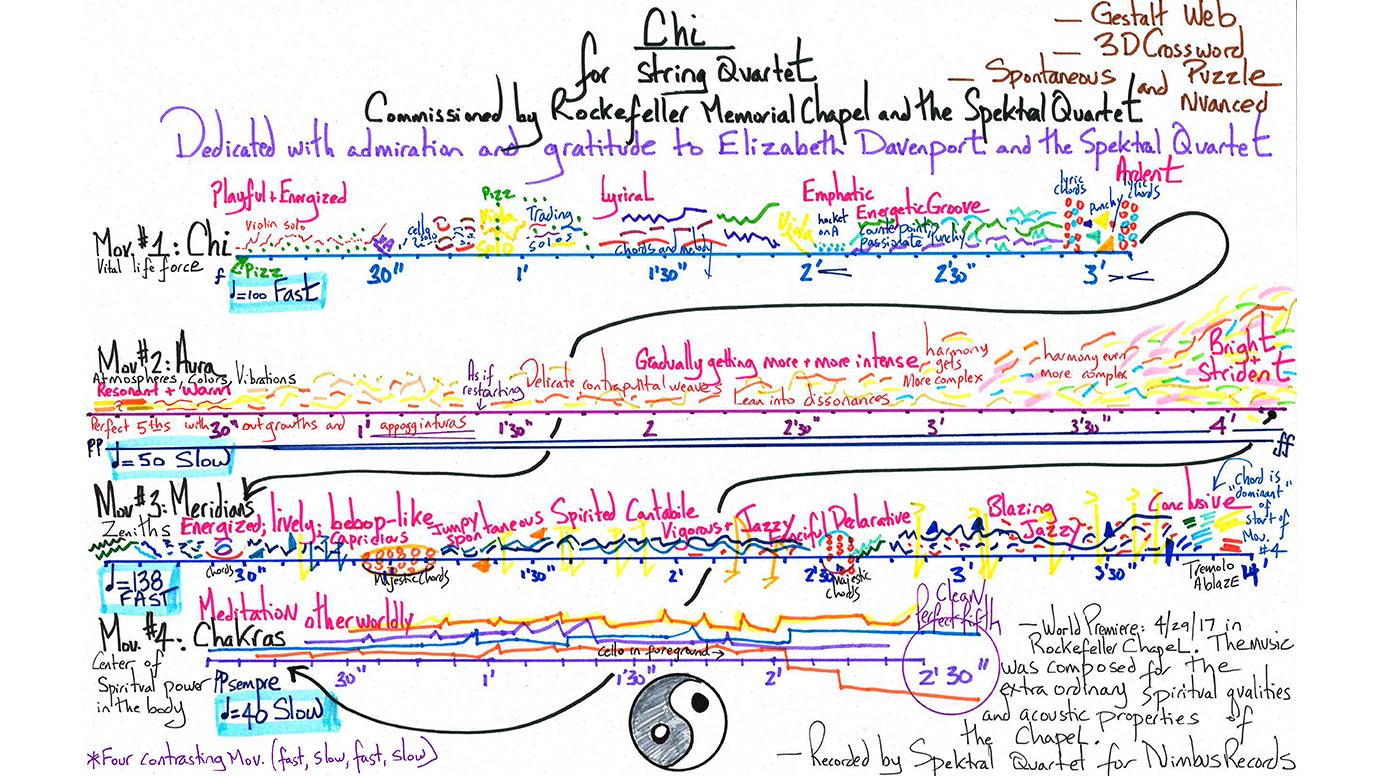 Chi
for String Quartet
Commissioned by Rockefeller Memorial Chapel and the Spektral Quartet
Dedicated with admiration and gratitude to Elizabeth Davenport and the Spektral Quartet
— Gestalt Web
— 3D Crossword Puzzle
— Spontaneous and Nuanced
Mov. #1: Chi
Vital life force
Playful + Energized
Violin solo
Pizz
f
♩=100 Fast
VA
cello solo
Pizz
Viola
solo
Trading
solos
Lyrical
Chords and melody
Emphatic
Viola
hocket
on A
Energetic Groove
counterpoint
passionate Punchy
lyric
chords
Punchy
Ardent
lyric
chords
30"
1'
1'30"
2'
2'30"
3'
Mov #2: Aura
Atmospheres, Colors, Vibrations
Resonant + Warm
As if
restarting
Delicate contrapuntal weaves
Gradually getting more + more intense
Lean into dissonances
harmony
gets
More complex
harmony even
more complex
Bright
+
Strident
Perfect 5ths with outgrowths and appoggiaturas
30"
1'
1'30"
2
2'30"
3'
3'30"
4'
PP
ff
♩=50 Slow
Mov #3: Meridians
Zeniths
Energized, lively, bebop-like
Capridious
Jumpy
spontaneous
Spirited Cantabile
Vigorous + Jazzy
Fanciful
Declarative
Blazing
Jazzy
Conclusive
chord is
"dominant"
of
start of
Mov.
#4
chords
Majestic Chords
majestic
chords
Tremolo
Ablaze
30"
1'30"
2'
2'30"
3'
3'30"
4'
♩=138
FAST
Mov. #4: Chakras
Center of
Spiritual power
in the body
Meditation otherworldly
Cello in foreground →
Clean
Perfect fifth
30"
1'
1'30"
2'
2'30"
PP sempre
♩=40 Slow
— World Premiere: 4/29/17 in
Rockefeller Chapel. The music
was composed for the
extra ordinary spiritual qualities
and acoustic properties of
the Chapel.
— Recorded by Spektral Quartet for Nimbus Records
*Four contrasting Mov. (fast, slow, fast, slow)